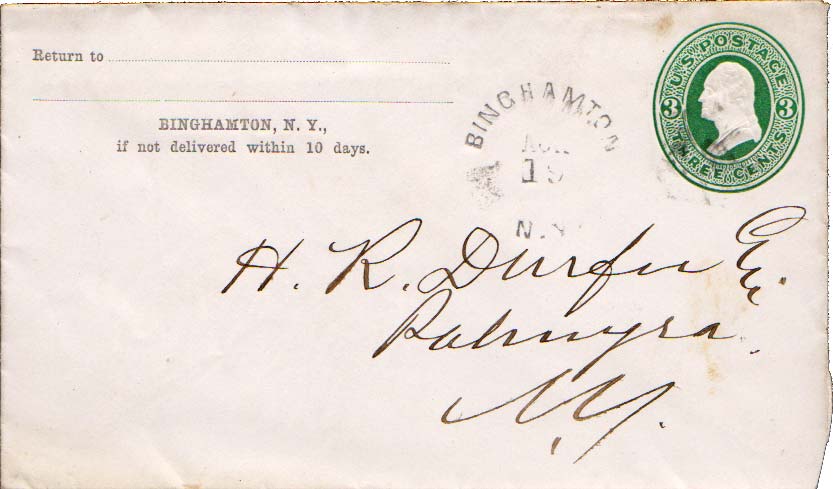 Return to
BINGHAMTON, N. Y.,
if not delivered within 10 days.
BINGHAMTON
19
N.Y.
U.S. POSTAGE
3 3
THREE CENTS
H. R. Durfee Esq.
Palmyra
N.Y.